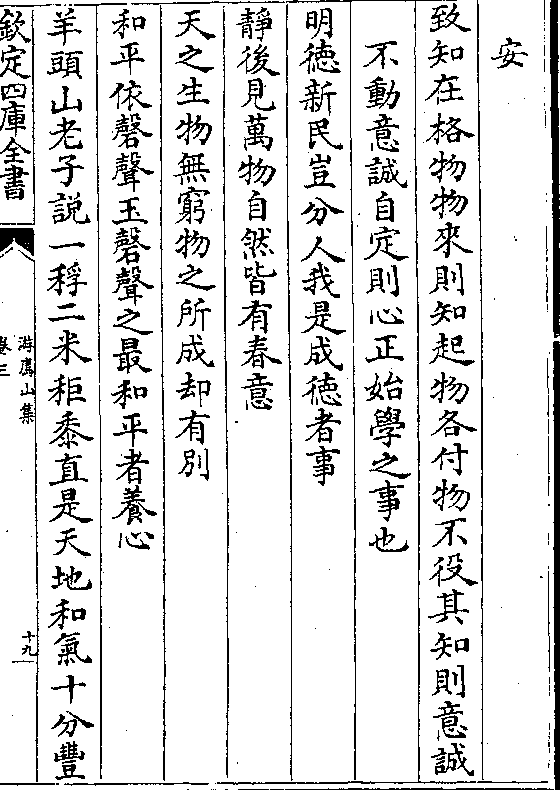 安
致知在格物物來則知起物各付物不役其知則意誠
不動意誠自定則心正始學之事也
明徳新民豈分人我是成徳者事
靜後見萬物自然皆有春意
天之生物無窮物之所成却有別
和平依磬聲玉磬聲之最和平者養心
羊頭山老子説一稃二米秬黍直是天地和氣十分豐
欽定四庫全書
游廌山集
卷三
十九